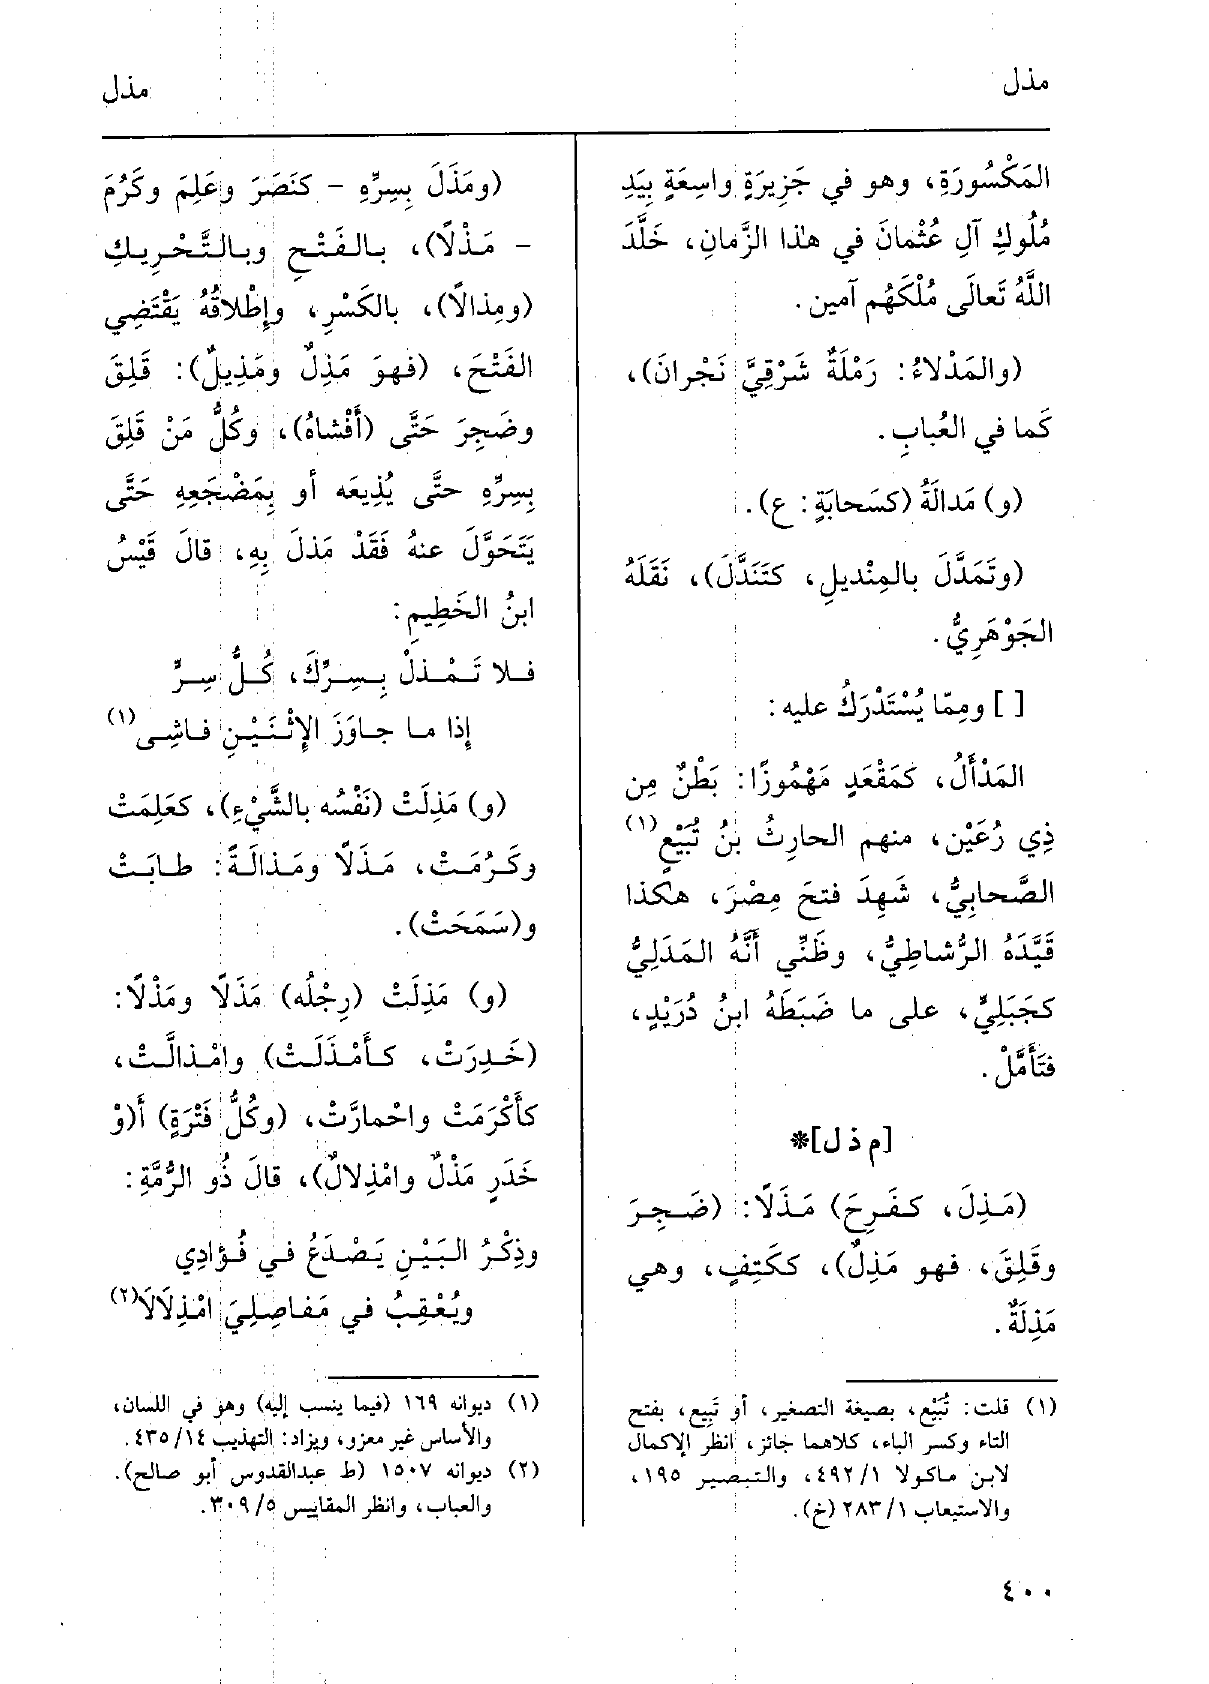 مذل
مذل
المَكْسُورَةِ، وهو في جَزِيرَةٍ واسِعَةٍ بِيَدِ
مُلُوكِ آلِ عُثْمانَ في هٰذا الزَّمانِ، خَلَّدَ
اللَّهُ تَعالَى مُلْكَهُم آمين.
(والمَدْلاءُ: رَمْلَةٌ شَرْقِيَّ نَجْرانَ)،
كَما في العُبابِ.
(و) مَدالَةُ (كسَحابَةٍ: ع).
(وتَمَدَّلَ بالمِنْديلِ، كتَنَدَّلَ)، نَقَلَهُ
الجَوْهَرِيُّ.
[ ] ومِمّا يُسْتَدْرَكُ عليه:
المَدْأَلُ، كمَقْعَدٍ مَهْمُوزًا: بَطْنٌ مِن
ذِي رُعَيْن، منهم الحارِثُ بنُ تُبَيْعٍ(١)
الصَّحابِيُّ، شَهِدَ فتحَ مِصْرَ، هكذا
قَيَّدَهُ الرُّشاطِيُّ، وظَنِّي أَنَّهُ المَدَلِيُّ
كجَبَلِيٍّ، على ما ضَبَطَهُ ابنُ دُرَيْدٍ،
فتَأَمَّلْ.
[م ذ ل]*
(مَـذِلَ، كـفَـرِحَ) مَـذَلًا: (ضَـجِـرَ
وقَلِقَ، فهو مَذِلٌ)، ككَتِفٍ، وهي
مَذِلَةٌ.
(١) قلت: تُبَيْع، بصيغة التصغير، أو تَبِيع، بفتح
التاء وكسر الباء، كلاهما جائز، انظر الإكمال
لابن ماكولا ١/ ٤٩٢، والتبصير ١٩٥،
والاستيعاب ١/ ٢٨٣ (خ).
(ومَذَلَ بِسِرِّهِ - كنَصَرَ وعَلِمَ وكَرُمَ
- مَذْلًا)، بالفَتْحِ وبالتَّحْرِيكِ
(ومِذالًا)، بالكَسْرِ، وإِطْلاقُهُ يَقْتَضِي
الفَتْحَ، (فهوَ مَذِلٌ ومَذِيلٌ): قَلِقَ
وضَجِرَ حَتَّى (أَفْشاهُ)، وكُلُّ مَنْ قَلِقَ
بِسِرِّهِ حتَّى يُذِيعَه أو بِمَضْجَعِهِ حَتَّى
يَتَحَوَّلَ عنهُ فَقَدْ مَذلَ بِهِ، قالَ قَيْسُ
ابنُ الخَطِيمِ:
فـلا تَـمْـذلْ بِـسِـرِّكَ، كُـلُّ سِـرٍّ
إذا ما جاوَزَ الإِثْنَيْنِ فاشِى(١)
(و) مَذِلَتْ (نَفْسُه بالشَّيْءِ)، كعَلِمَتْ
وكَرُمَتْ، مَذَلًا ومَذالَةً: طابَتْ
و(سَمَحَتْ).
(و) مَذِلَتْ (رِجْلُه) مَذَلًا ومَذْلًا:
(خَـدِرَتْ، كـأَمْـذَلَـتْ) وامْـذالَّـتْ،
كأَكْرَمَتْ واحْمارَّتْ، (وكُلُّ فَتْرَةٍ) أَ(وْ
خَدَرٍ مَذْلٌ وامْذِلالٌ)، قالَ ذُو الرُّمَّةِ:
وذِكْرُ البَيْنِ يَصْدَعُ في فُؤادِي
ويُعْقِبُ في مَفاصِلِيَ امْذِلَالَا(٢)
(١) ديوانه ١٦٩ (فيما ينسب إليه) وهو في اللسان،
والأساس غير معزو، ويزاد: التهذيب ١٤/ ٤٣٥.
(٢) ديوانه ١٥٠٧ (ط عبدالقدوس أبو صالح).
والعباب، وانظر المقاييس ٥/ ٣٠٩.
٤٠٠